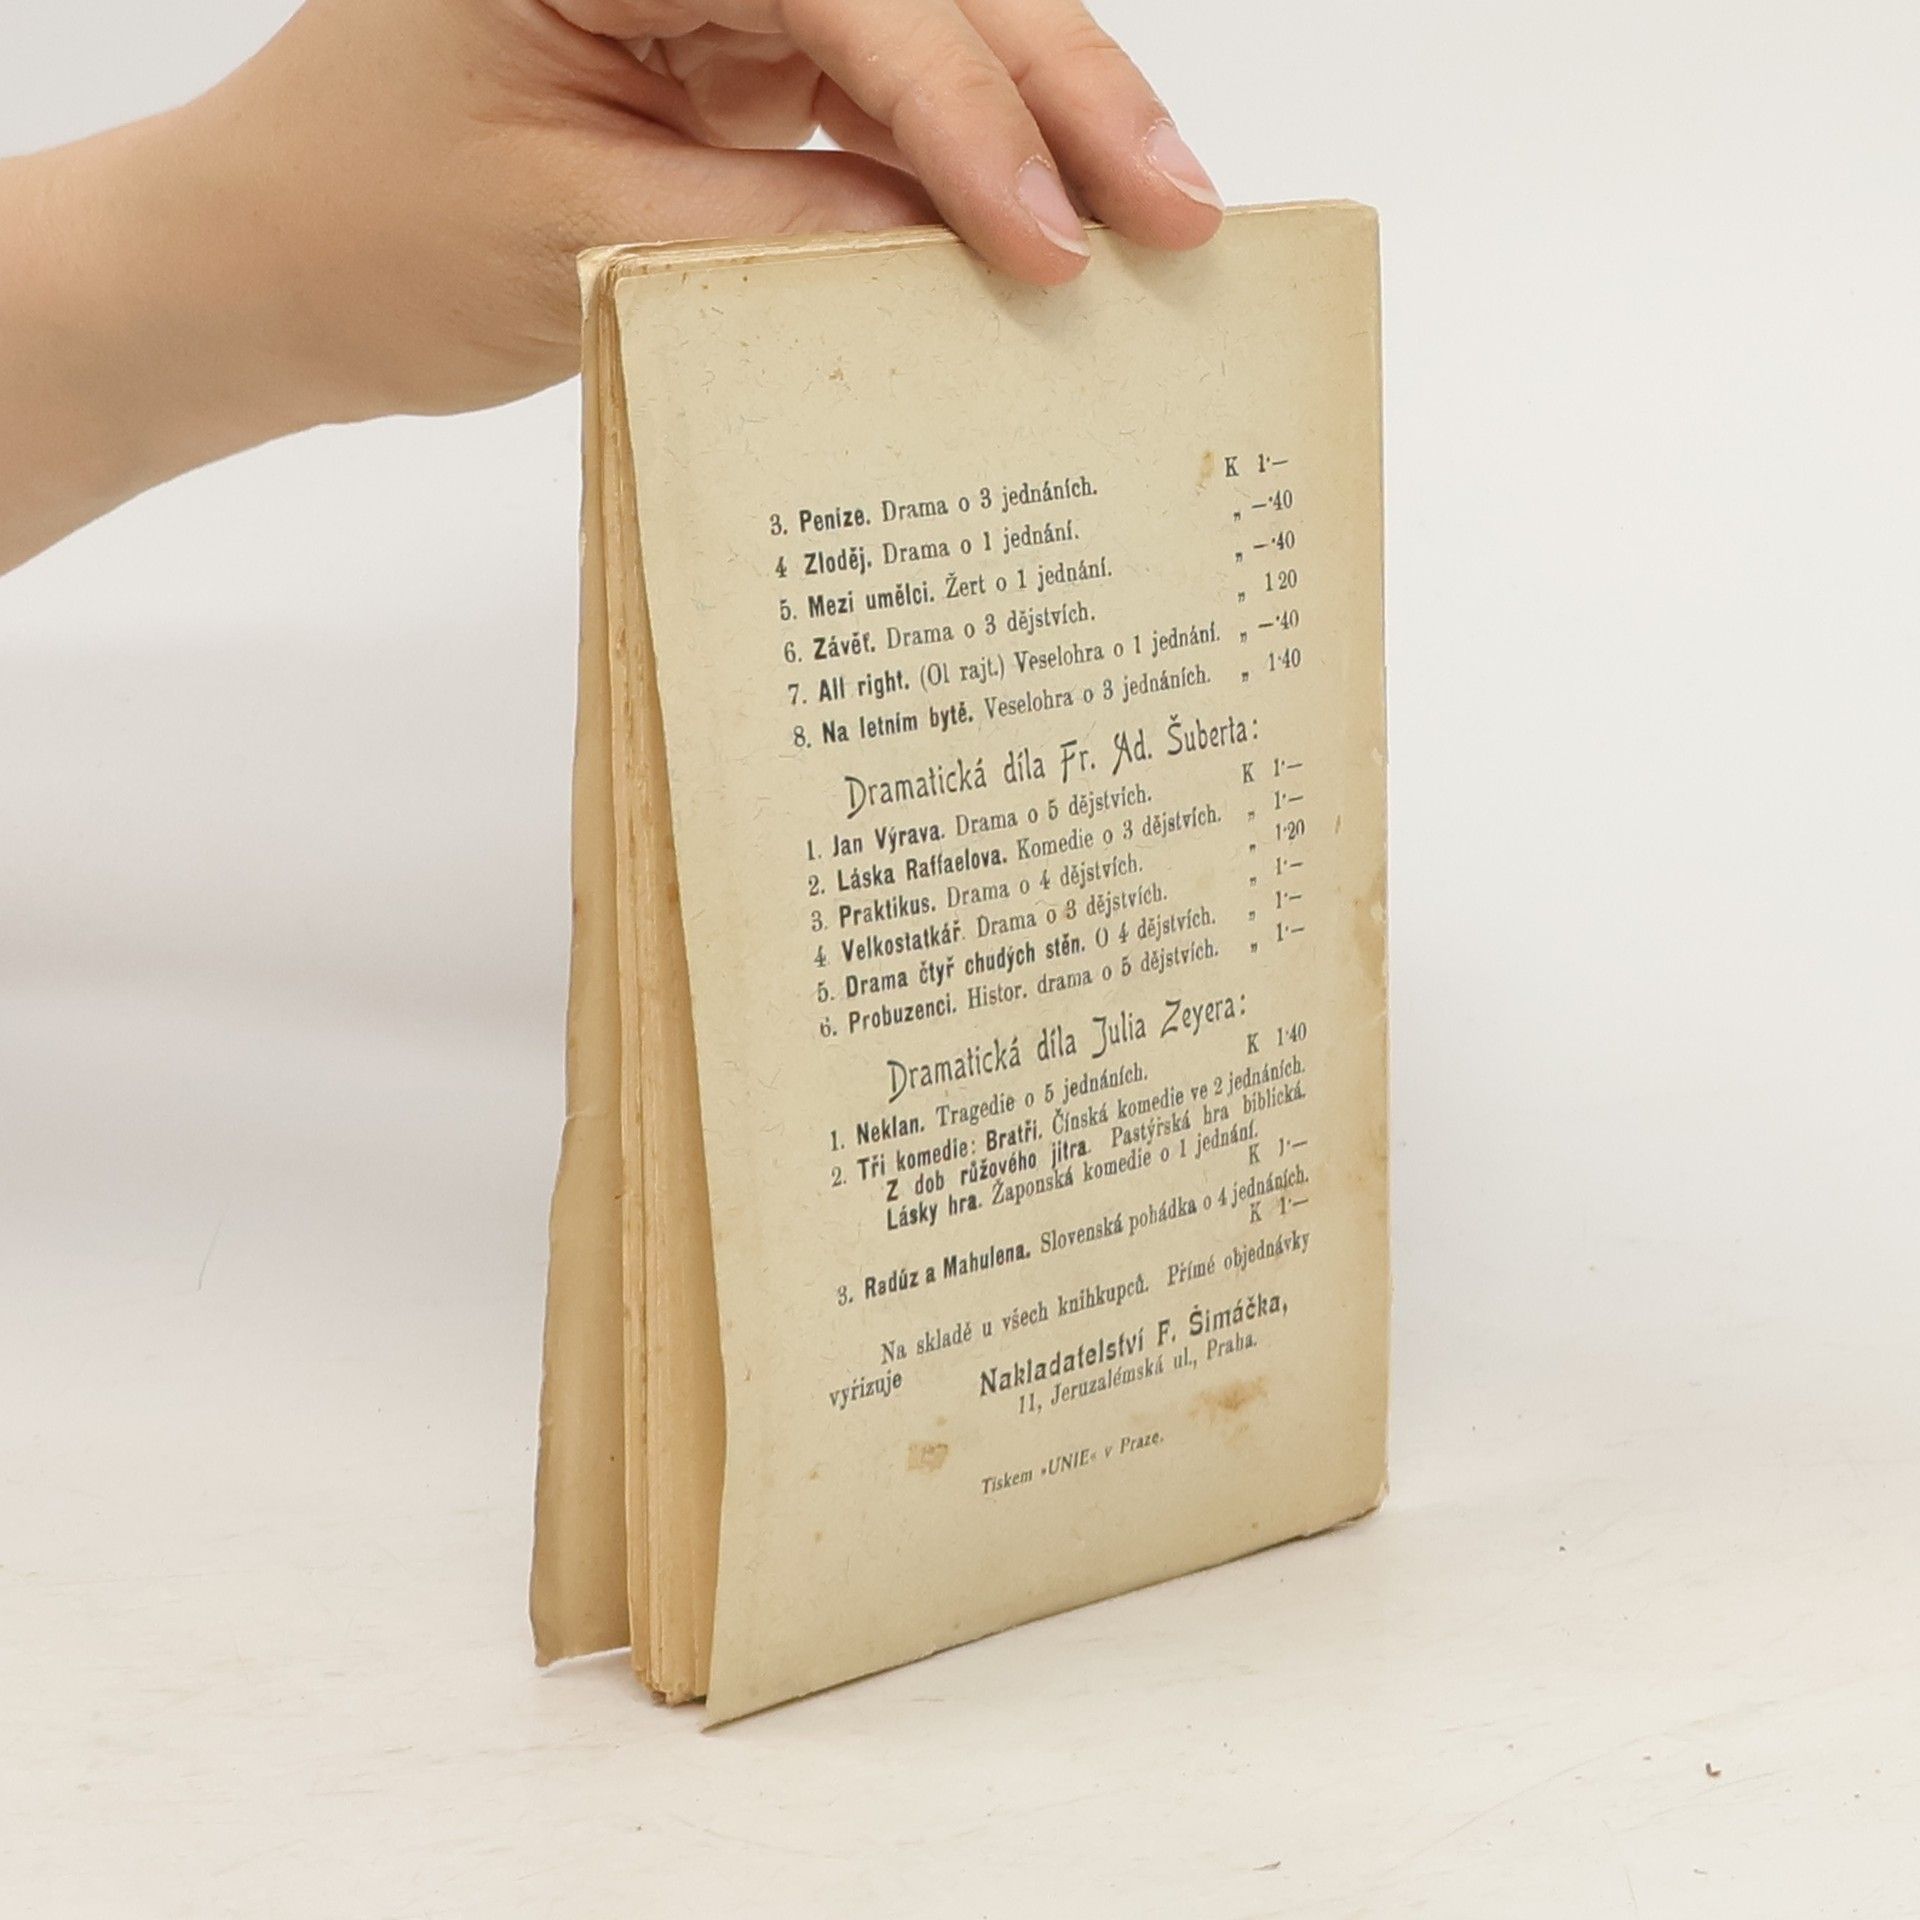 3. Peníze. Drama o 3 jednáních. K 1·—
4 Zloděj. Drama o 1 jednání. „ —·40
5. Mezi umělci. Žert o 1 jednání. „ —·40
6. Závěť. Drama o 3 dějstvích. „ 1 20
7. All right. (Ol rajt.) Veselohra o 1 jednání. „ —·40
8. Na letním bytě. Veselohra o 3 jednáních. „ 1·40
Dramatická díla Fr. Ad. Šuberta:
1. Jan Výrava. Drama o 5 dějstvích. K 1·—
2. Láska Raffaelova. Komedie o 3 dějstvích. „ 1·—
3. Praktikus. Drama o 4 dějstvích. „ 1·20
4. Velkostatkář. Drama o 3 dějstvích. „ 1·—
5. Drama čtyř chudých stěn. O 4 dějstvích. „ 1·—
6. Probuzenci. Histor. drama o 5 dějstvích. „ 1·—
Dramatická díla Julia Zeyera:
1. Neklan. Tragedie o 5 jednáních. K 1·40
2. Tři komedie: Bratři. Čínská komedie ve 2 jednáních.
Z dob růžového jitra. Pastýřská hra biblická.
Lásky hra. Žaponská komedie o 1 jednání.
K 1·—
3. Radúz a Mahulena. Slovenská pohádka o 4 jednáních.
K 1·—
Na skladě u všech knihkupců. Přímé objednávky
vyřizuje
Nakladatelství F. Šimáčka,
11, Jeruzalémská ul., Praha.
Tiskem »UNIE« v Praze.